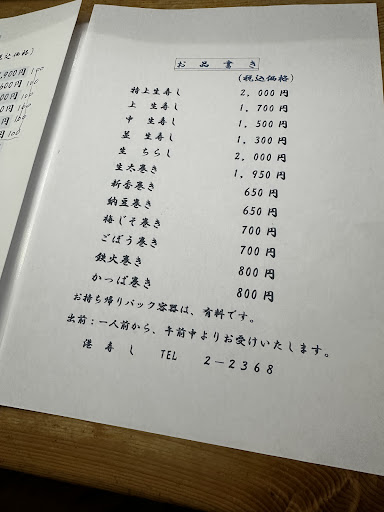 込価格)
,900円 100
600円 100
00円 100
0円 100
円 100
円 100
お 品 書 き
(税込価格)
特上生寿し 2,000円
上 生寿し 1,700円
中 生寿し 1,500円
並 生寿し 1,300円
生 ちらし 2,000円
生太巻き 1,950円
新香巻き 650円
納豆巻き 650円
梅じそ巻き 700円
ごぼう巻き 700円
鉄火巻き 800円
かっぱ巻き 800円
お持ち帰りパック容器は、有料です。
出前:一人前から、午前中よりお受けいたします。
港 寿 し TEL 2-2368